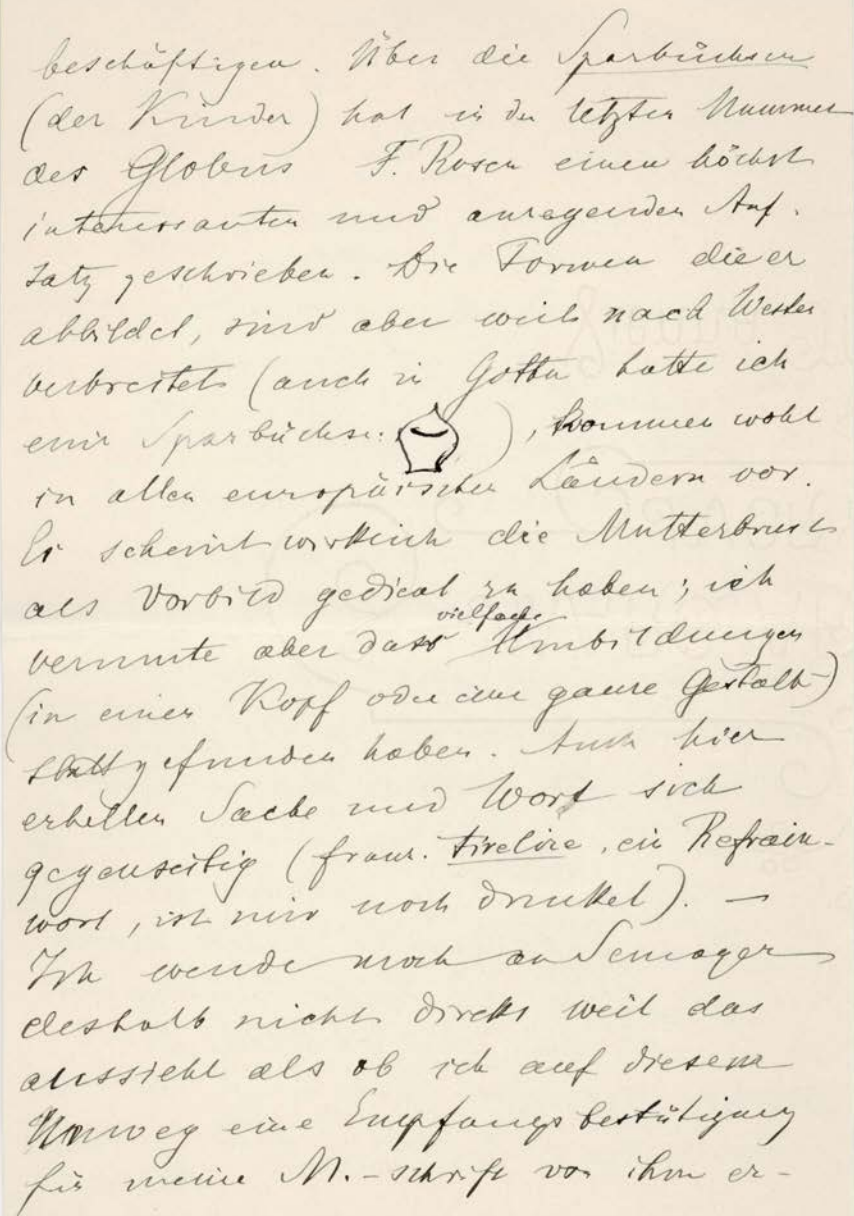 beschäftigen. Über die Sparbüchsen
(der Kinder) hat in der letzten Nummer
des Globus F. Rosen einen höchst
interessanten und anregenden Auf-
satz geschrieben. Die Formen die er
abbildet, sind aber weit nach Westen
verbreitet (auch in Gotha hatte ich
eine Sparbüchse: ), kommen wohl
in allen europäischen Ländern vor.
Es scheint wirklich die Mutterbrust
als Vorbild gedient zu haben; ich
vermute aber dass vielfache Umbildungen
(in einen Kopf oder eine ganze Gestalt)
stattgefunden haben. Auch hier
erhellen Sache und Wort sich
gegenseitig (franz. tirelire, ein Refrain-
wort, ist mir noch dunkel). —
Ich wende mich an
deshalb nicht direkt weil das
aussieht als ob ich auf diesem
Umweg eine Empfangsbestätigung
für meine M.-schrift von ihm er-